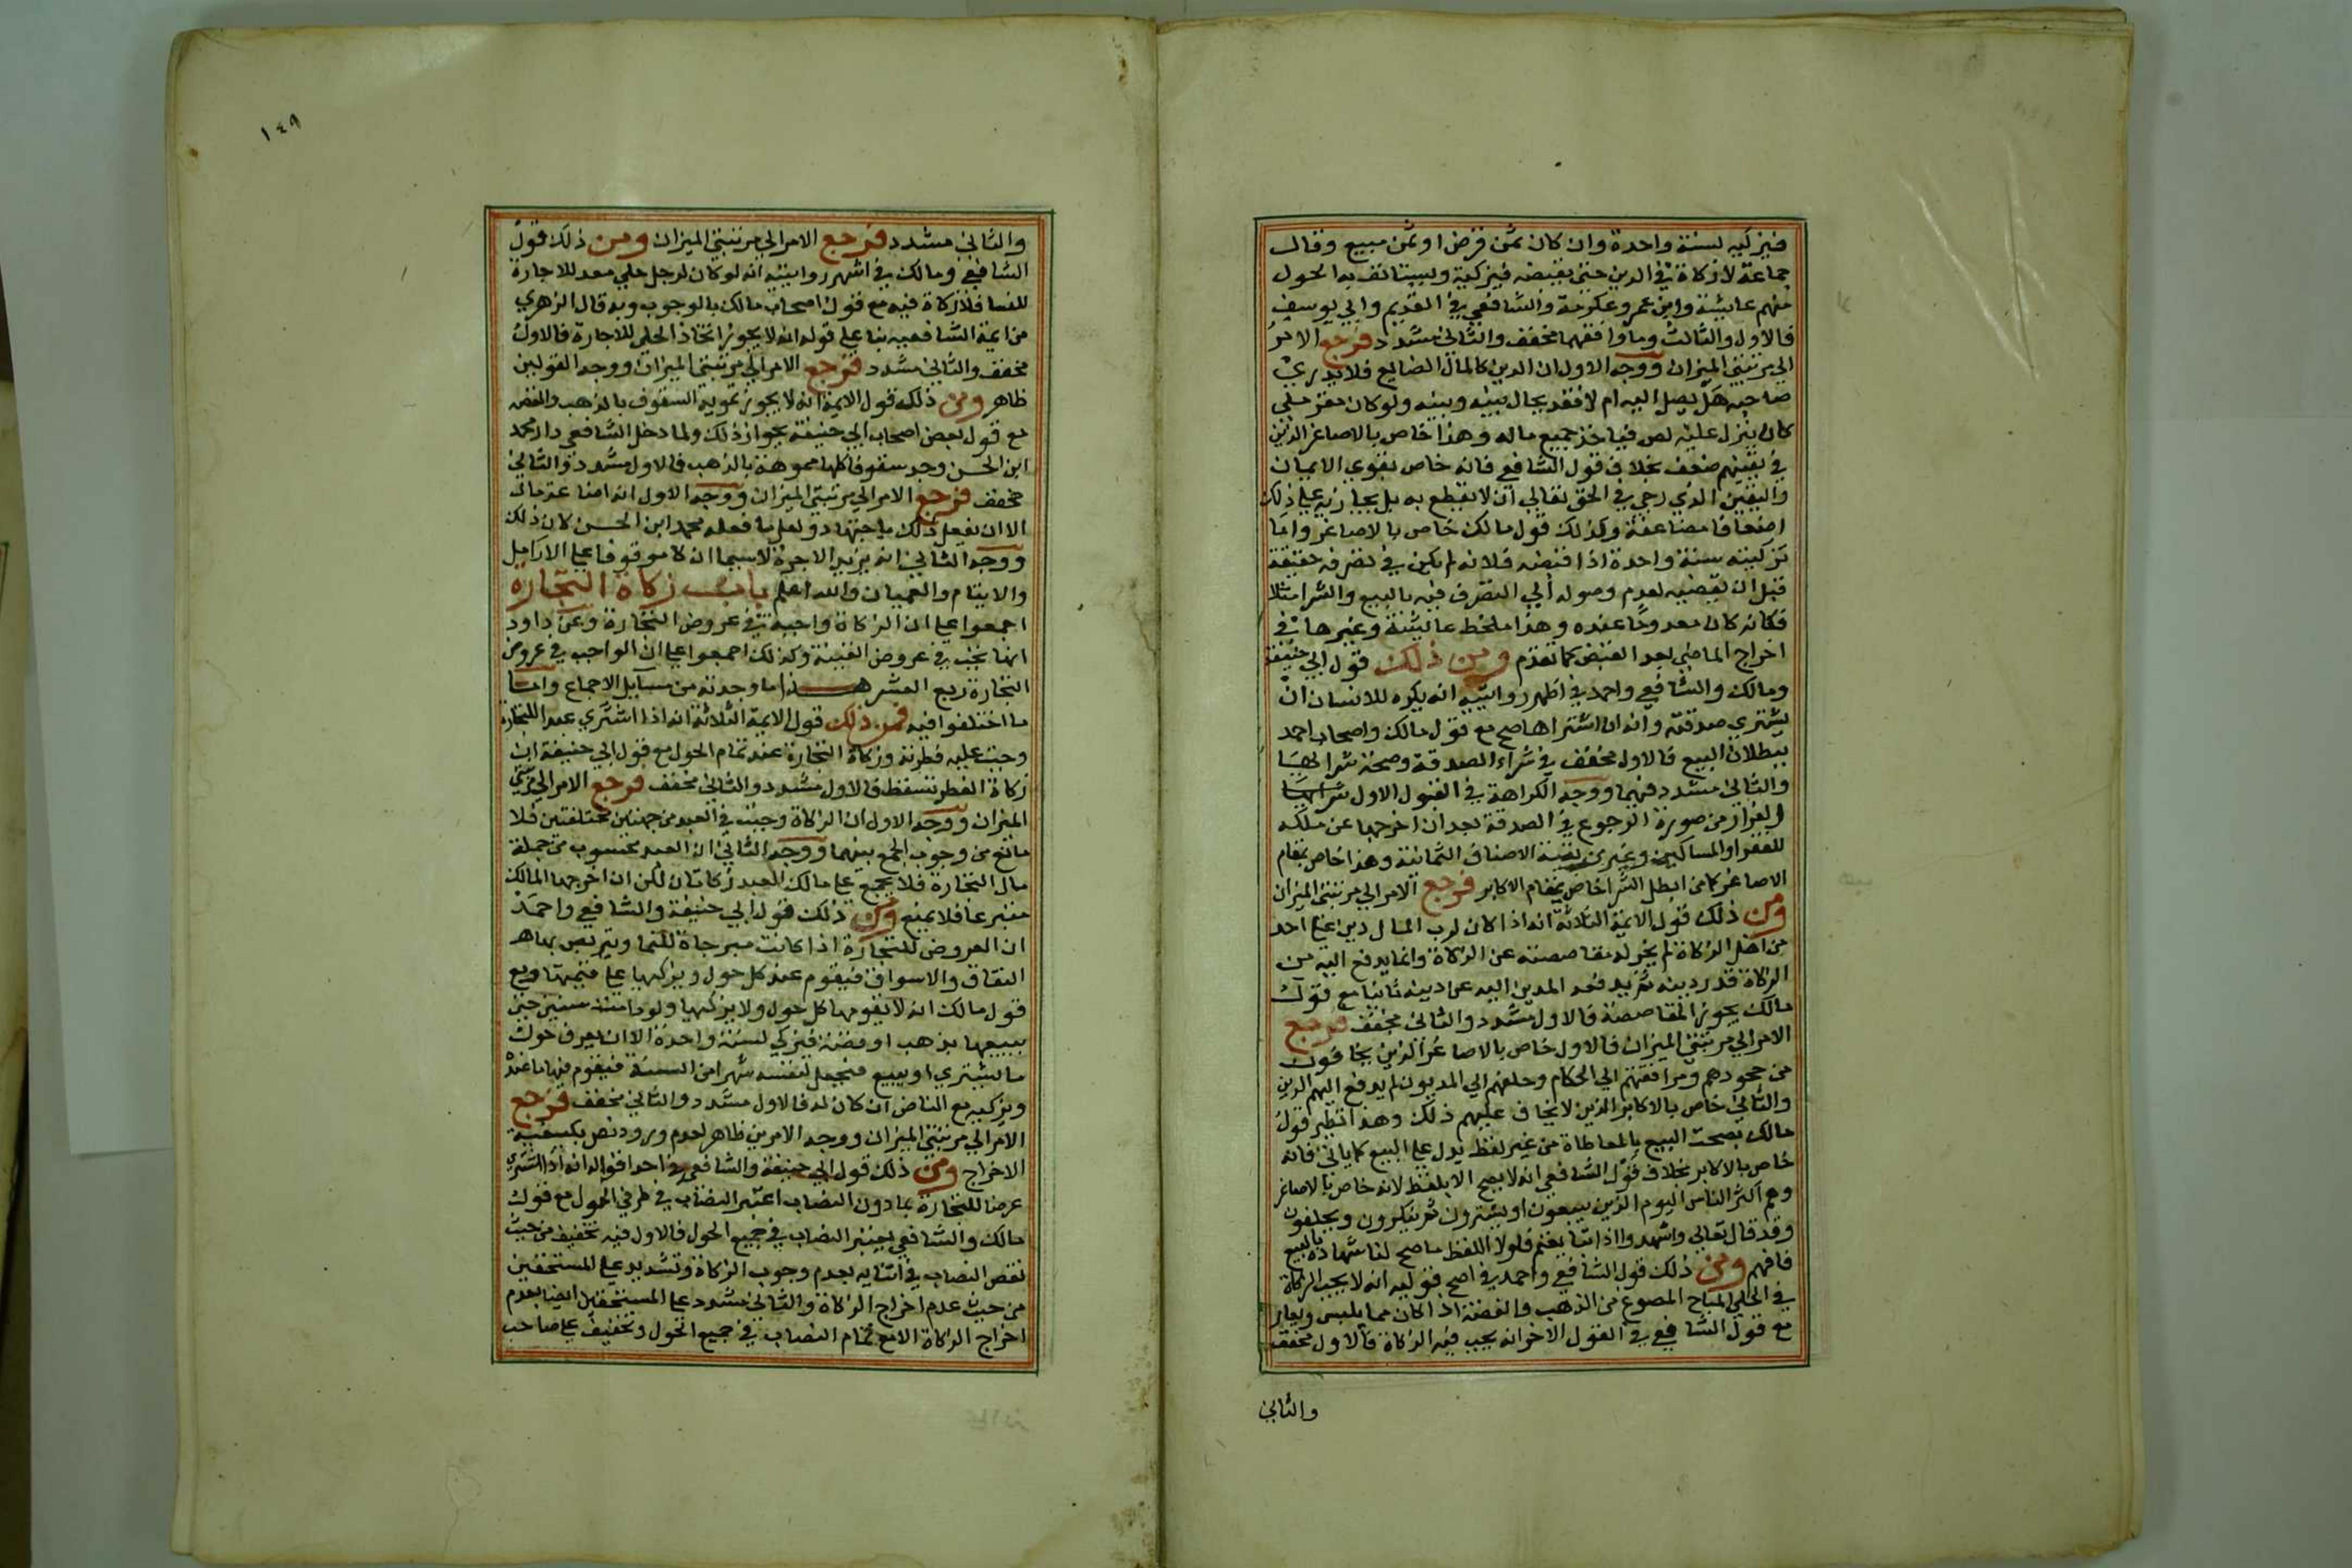 فيزكيه لسنة واحدة وان كان ثمن قرض او ثمن مبيع وقال
جماعة لا زكاة في الدين حتى يقبضه فيزكيه ويستانف به الحول
منهم عايشة وابن عمر وعكرمة والشافعي في القديم وابي يوسف
فالاول والثالث وما وافقهما مخفف والثاني مشدد فرجع الامر
الي مرتبتي الميزان ووجه الاول ان الدين كالمال الضايع فلا يدري
صاحبه هل يصل اليه ام لا فقد يحال بينه وبينه ولو كان مقر ملي
كان ينزل عليه لص فياخذ جميع ماله وهذا خاص بالاصاغر الذين
في يقينهم ضعف بخلاف قول الشافعي فانه خاص بقوي الايمان
واليقين الذي رجي في الحق تعالي ان لا يقطع به بل يجازيه علي ذلك
اضعافا مضاعفة وكذلك قول مالك خاص بالاصاغر واما
تزكيته سنة واحدة اذا قبضه فلانه لم يكن في تصرفه حقيقة
قبل ان يقبضه لعدم وصوله الي التصرف فيه بالبيع والشرا مثلا
فكانه كان معدوما عنده وهذا ملحظ عايشة وغيرها في
اخراج الماضي بعد القبض كما تقدم ومن ذلك قول ابي حنيفة
ومالك والشافعي واحمد في اظهر روايتيه انه يكره للانسان ان
يشتري صدقته وانه ان اشتراها صح مع قول مالك واصحاب احمد
ببطلان البيع فالاول مخفف في شراء الصدقة وصحة شرايها
والثاني مشدد فيهما ووجه الكراهة في القول الاول شرايها
الفرار من صورة الرجوع في الصدقة بعد ان اخرجها عن ملكه
للفقرا والمساكين وغيرهم بقية الاصناف الثمانية وهذا خاص بمقام
الاصاغر كما من ابطل الشرا خاص بمقام الاكابر فرجع الامر الي مرتبتي الميزان
ومن ذلك قول الايمة الثلاثة انه اذا كان لرب المال دين علي احد
من اهل الزكاة لم يجز له مقاصصته عن الزكاة وانما يدفع اليه من
الزكاة قدر دينه ثم يدفعه المدين اليه عن دينه ثانيا مع قول
مالك يجوز المقاصصة فالاول مشدد والثاني مخفف فرجع
الامر الي مرتبتي الميزان فالاول خاص بالاصاغر الذين يخافون
من جحودهم ومرافقتهم الي الحكام وحلفهم الي المديون لم يدفع اليهم الدين
والثاني خاص بالاكابر الذين لا يخاف عليهم ذلك وهذا نظير قول
مالك بصحت البيع بالمعاطاة من غير لفظ يدل علي البيع كما ياتي فانه
خاص بالاكابر بخلاف قول الشافعي انه لا يصح الا بلفظ لانه خاص بالاصاغر
وهم اكثر الناس اليوم الذين يبيعون او يشترون ثم ينكرون ويحلفون
وقد قال تعالي واشهدوا اذا تبايعتم فلولا اللفظ ما صح لنا شهادة بالبيع
فافهم ومن ذلك قول الشافعي واحمد في اصح قوليه انه لا يجب الزكاة
في الحلي المباح المصوغ من الذهب والفضة اذا كان مما يلبس ويعار
مع قول الشافعي في القول الاخر انه يجب فيه الزكاة فالاول مخفف
والثاني
١٤٩
والثاني مشدد فرجع الامر الي مرتبتي الميزان ومن ذلك قول
الشافعي ومالك في اشهر روايتيه انه لو كان لرجل حلي معد للاجارة
للنسا فلا زكاة فيه مع قول اصحاب مالك بالوجوب وبه قال الزهري
من ايمة الشافعيه بنا علي قوله انه لا يجوز اتخاذ الحلي للاجارة فالاول
مخفف والثاني مشدد فرجع الامر الي مرتبتي الميزان ووجه القولين
ظاهر ومن ذلك قول الايمة انه لا يجوز تمويه السقوف بالذهب والفضه
مع قول بعض اصحاب ابي حنيفة بجواز ذلك ولما دخل الشافعي دار محمد
ابن الحسن وجد سقوفا كلها مموهة بالذهب فالاول مشدد والثاني
مخفف فرجع الامر الي مرتبتي الميزان ووجه الاول انه اضاعة مال
الا ان يفعل ذلك باجتهاد ولعل ما فعله محمد ابن الحسن كان ذلك
ووجه الثاني انه يزيد الاجرة لا سيما ان كا موقوفا علي الارامل
والايتام والعميان والله اعلم باب زكاة التجارة
اجمعوا علي ان الزكاة واجبة في عروض التجارة وعن داود
انها تجب في عروض القنية وكذلك اجمعوا علي ان الواجب في عروض
التجارة ربع العشر هذا ما وجدته من مسايل الاجماع واما
ما اختلفوا فيه فمن ذلك قول الايمة الثلاثة انه اذا اشتري عبدا للتجارة
وجبت عليه فطرته وزكاة التجارة عند تمام الحول مع قول ابي حنيفة ان
زكاة الفطر تسقط فالاول مشدد والثاني مخفف فرجع الامر الي مرتبتي
الميزان ووجه الاول ان الزكاة وجبت في العبد من جهتين مختلفتين فلا
مانع من وجوب الجمع بينهما ووجه الثاني ان العبد محسوب من جملة
مال التجارة فلا يجمع علي مالك العبد زكاتان لكن ان اخرجها المالك
متبرعا فلا يمنع ومن ذلك قول ابي حنيفة والشافعي واحمد
ان العروض للتجارة اذا كانت مبرجاة للنما ويتربص بها هر
النفاق والاسواق فيقوم عند كل حول ويزكيها علي قيمتها ومع
قول مالك انه لا يقومها كل حول ولا يزكيها ولو دامت سنين حتي
يبيعها بذهب او فضة فيزكي لسنة واحدة الا ان يعرف حول
ما يشتري او يبيع فيجعل لنفسه شهرا من السنة فيقوم فيها ما عنده
ويزكيه مع الناض ان كان له فالاول مشدد والثاني مخفف فرجع
الامر الي مرتبتي الميزان ووجه الامرين ظاهر لعدم ورود نص بكيفية
الاخراج ومن ذلك قول ابي حنيفة والشافعي في احد اقواله انه اذا اشتري
عرضا للتجارة بما دون النصاب اعتبر النصاب في طرفي الحول مع قول
مالك والشافعي يعتبر النصاب في جميع الحول فالاول فيه تخفيف من حيث
نقص النصاب في اثنايه بعدم وجوب الزكاة وتشديد علي المستحقين
من حيث عدم اخراج الزكاة والثاني مشدد علي المستحقين ايضا بعدم
اخراج الزكاة الا مع تمام النصاب في جميع الحول وتخفيف علي صاحب